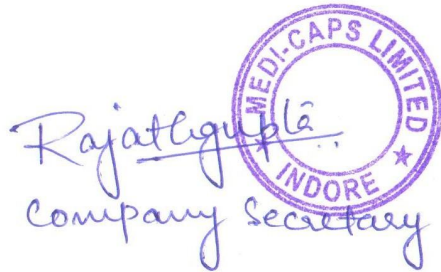 MEDI-CAPS LIMITED
INDORE
Rajathgupta
Company Secretary